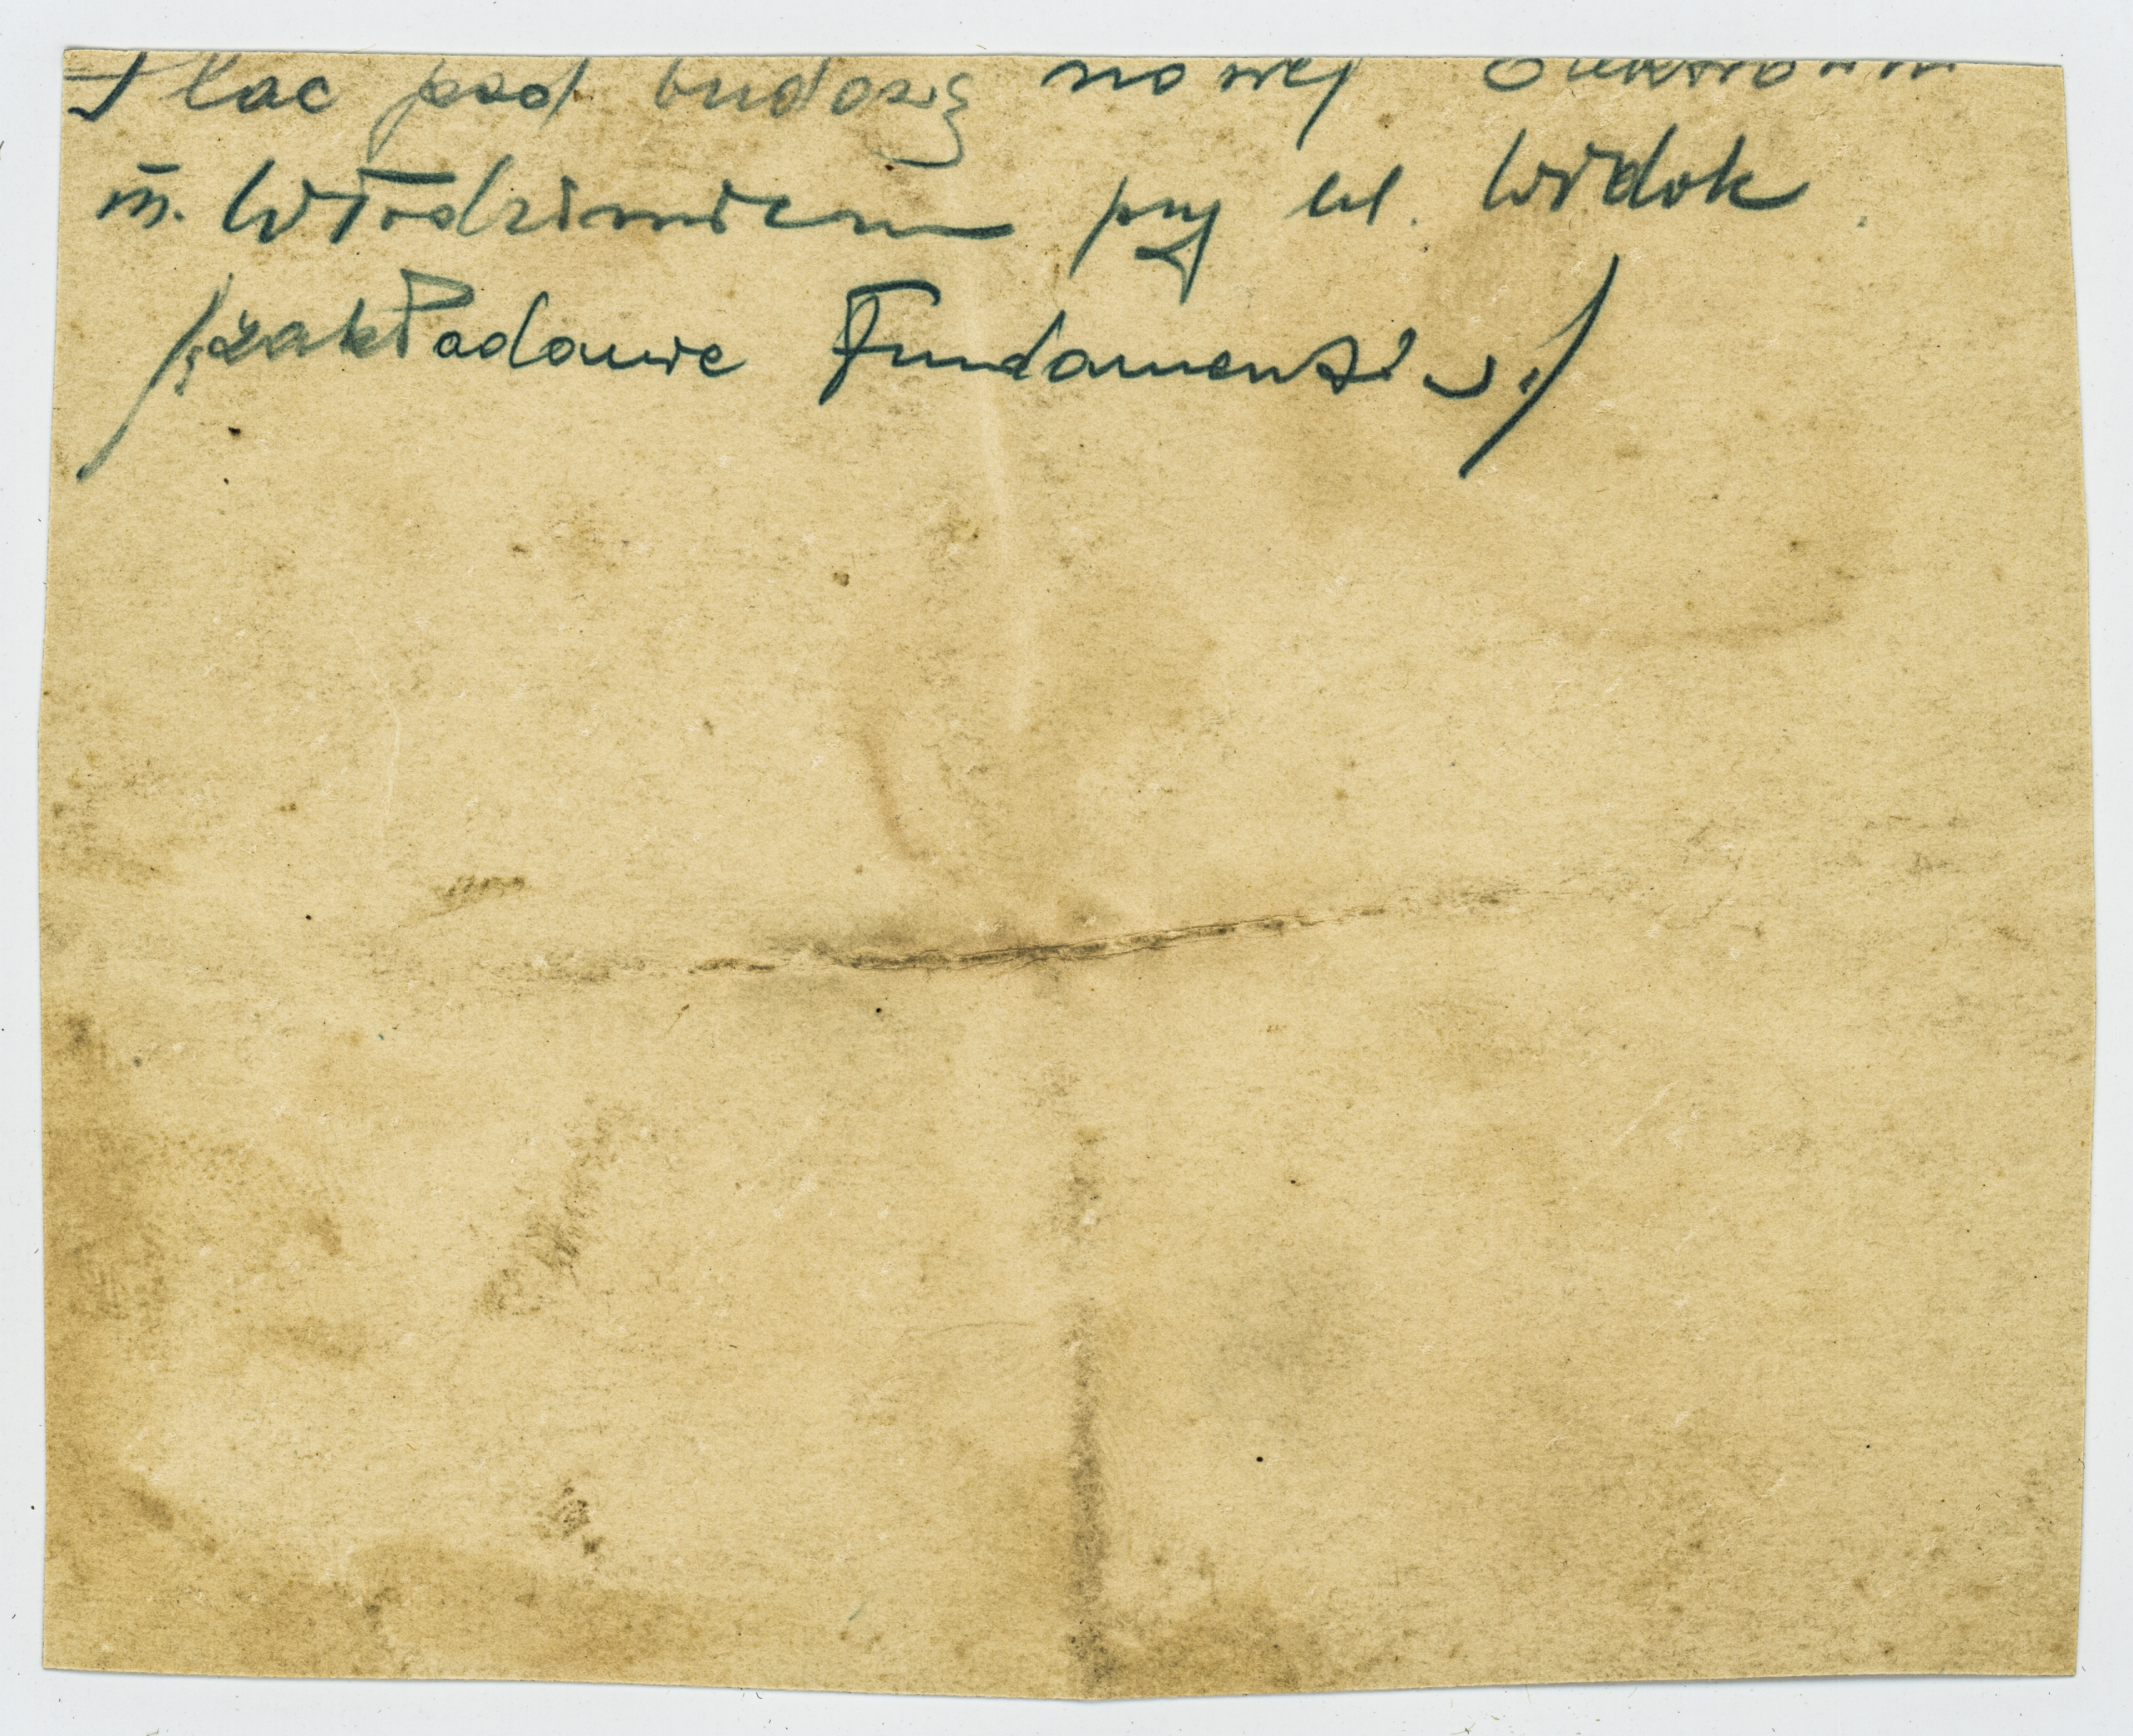 Plac pod budowę nowej Elektrowni
m. Włodzimierzu przy ul. Widok.
/zakładanie fundamentów./